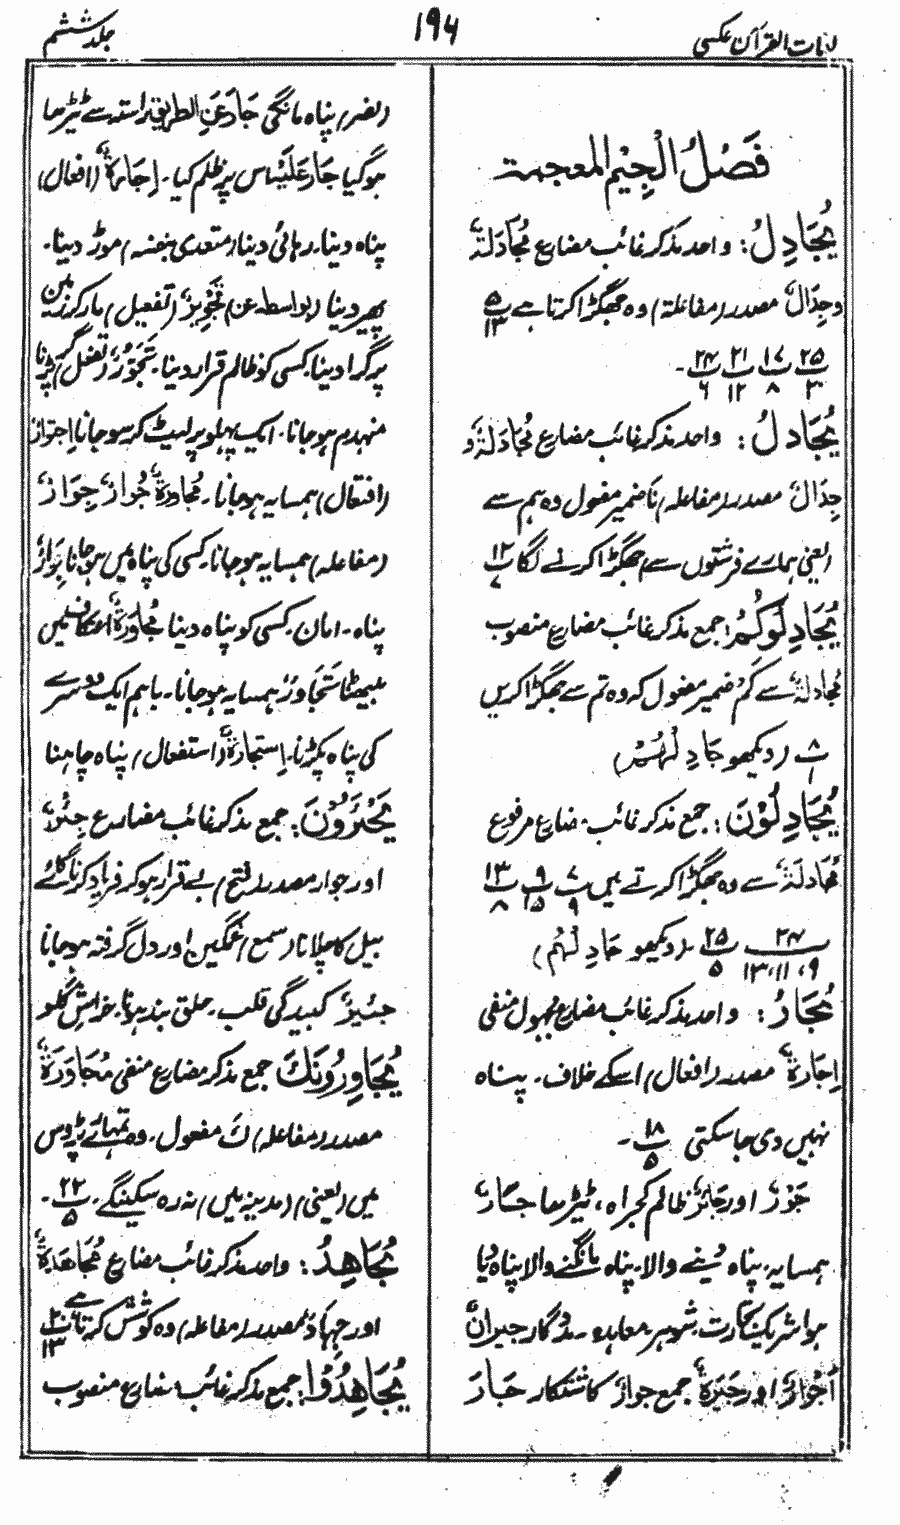 لغات القرآن عکسی
۱۹۶
جلد ششم
فَصْلُ الْجِیْمِ المعجمۃ
یُجَادِلُ: واحد مذکر غائب مضارع مُجَادَلَۃٌ
وجِدَالٌ مصدر (مفاعلۃ) وہ جھگڑا کرتا ہے
۲۵ ۱۷ ۲۱ ۲۴
۳ ۸ ۱۲ ۶
یُجَادِلُ: واحد مذکر غائب مضارع مُجَادَلَۃٌ و
جِدَالٌ مصدر (مفاعلہ) نَا ضمیر مفعول وہ ہم سے
(یعنی ہمارے فرشتوں سے) جھگڑا کرنے لگا ۱۲ ۷
یُجَادِلُوْکُمْ: جمع مذکر غائب مضارع منصوب
مُجَادَلَۃٌ سے کُمْ ضمیر مفعول کہ وہ تم سے جھگڑا کریں
۸ ۱ (دیکھو جَادِلْہُمْ)
یُجَادِلُوْنَ: جمع مذکر غائب مضارع مرفوع
مُجَادَلَۃٌ سے وہ جھگڑا کرتے ہیں ۷ ۹ ۹ ۱۵ ۱۳ ۸
۲۴ ۹، ۱۱، ۱۳ ۲۵ ۵ (دیکھو جَادِلْہُمْ)
یُجَارُ: واحد مذکر غائب مضارع مجہول منفی
اِجَارَۃٌ مصدر (افعال) اسکے خلاف۔ پناہ
نہیں دی جا سکتی ۱۸ ۵۔
جَوْرٌ اور جَائِرٌ ظالم گمراہ، ٹیڑھا جَارٌ
ہمسایہ۔ پناہ دینے والا۔ پناہ مانگنے والا پناہ دیا
ہوا شریک تجارت۔ شوہر۔ معاہد۔ مددگار جِیْرَانٌ
اَجْوَارٌ اور جِیَرَۃٌ جمع جوارٌ کاشتکار جَارَ
(نصر) پناہ مانگی جَارَ عَنِ الطریق راستہ سے ٹیڑھا
ہو گیا جَارَ عَلَیْہِ اس پر ظلم کیا۔ اِجَارَۃٌ (افعال)
پناہ دینا۔ رہائی دینا (متعدی بنفسہ) موڑ دینا۔
پھیر دینا (بواسطہ عن) تَجْوِیْرٌ (تفعیل) مار کر زمین
پر گرا دینا۔ کسی کو ظالم قرار دینا۔ تَجَوُّرٌ (تفعل) گر پڑنا
منہدم ہو جانا۔ ایک پہلو پر لیٹ کر سو جانا اِجتوار
(افتعال) ہمسایہ ہو جانا۔ مُجَاورۃٌ جُوارٌ جِوَارٌ
(مفاعلہ) ہمسایہ ہو جانا۔ کسی کی پناہ میں ہو جانا جِوَارٌ
پناہ۔ امان۔ کسی کو پناہ دینا مُجَاوَرَۃٌ اعتکاف میں
بیٹھنا تَجَاوُرٌ ہمسایہ ہو جانا۔ باہم ایک دوسرے
کی پناہ پکڑنا۔ اِستجارۃٌ (استفعال) پناہ چاہنا
یَجْئَرُوْنَ: جمع مذکر غائب مضارع جَئْرٌ
اور جوار مصدر (فتح) بے قرار ہو کر فریاد کرنا گائے
بیل کا چلانا (سمع) غمگین اور دل گرفتہ ہو جانا
جئیرٌ کبیدگی قلب۔ حلق بند ہونا۔ خراش گلو
یُجَاوِرُوْنَکَ جمع مذکر مضارع منفی مُجَاوَرَۃٌ
مصدر (مفاعلہ) کَ مفعول۔ وہ تمہارے پڑوس
میں (یعنی) (مدینہ میں) نہ رہ سکینگے۔ ۲۲ ۵۔
یُجَاھِدُ: واحد مذکر غائب مضارع مُجَاھَدَۃٌ
اور جہاد مصدر (مفاعلہ) وہ کوشش کرتا ہے ۲۰ ۱۳
یُجَاھِدُوْا: جمع مذکر غائب مضارع منصوب